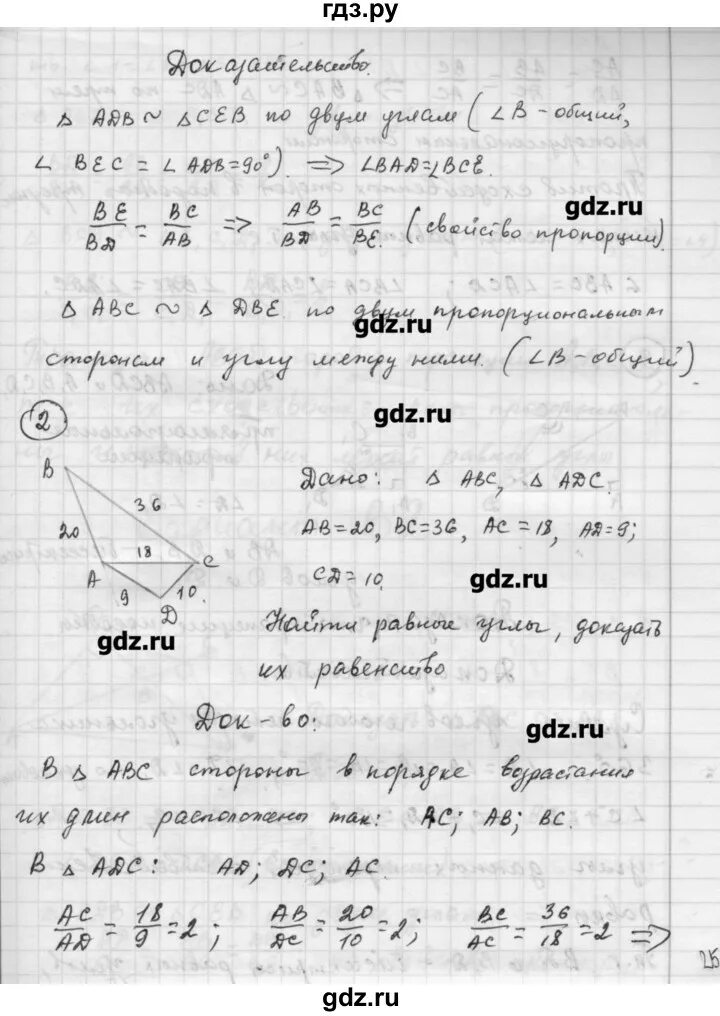 гдз.ру
Доказательство.
△ ADB ~ △ CEB по двум углам (∠B – общий,
∠ BEC = ∠ ADB = 90°). ⇒ ∠BAD = ∠BCE.
BE/BD = BC/AB ⇒ AB/BD = BC/BE. (свойство пропорции).
gdz.ru
△ ABC ~ △ DBE. по двум пропорциональным
gdz.ru
сторонам и углу между ними. (∠B – общий)
gdz.ru
2
B
36
20
18
A
C
9
10.
D
gdz.ru
Дано: △ ABC, △ ADC.
AB=20, BC=36, AC=18, AD=9;
CD=10.
gdz.ru
Найти равные углы, доказать
их равенство
Док-во:
gdz.ru
В △ ABC стороны в порядке возрастания
их длин расположены так: AC; AB; BC.
В △ ADC: AD; DC; AC.
AC/AD = 18/9 = 2; AB/DC = 20/10 = 2; BC/AC = 36/18 = 2 ⇒
gdz.ru